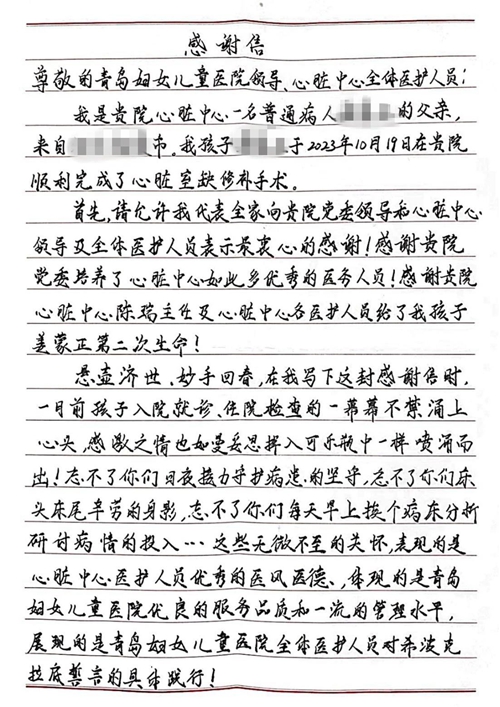 感谢信
尊敬的青岛妇女儿童医院领导、心脏中心全体医护人员：
我是贵院心脏中心一名普通病人的父亲，
来自市。我孩子于2023年10月19日在贵院
顺利完成了心脏室缺修补手术。
首先，请允许我代表全家向贵院党委领导和心脏中心
领导及全体医护人员表示最衷心的感谢！感谢贵院
党委培养了心脏中心如此多优秀的医务人员！感谢贵院
心脏中心陈瑞主任及心脏中心各医护人员给了我孩子
姜蒙正第二次生命！
悬壶济世、妙手回春，在我写下这封感谢信时，
一月前孩子入院就诊、住院检查的一幕幕不禁涌上
心头，感激之情也如曼妥思掉入可乐瓶中一样喷涌而
出！忘不了你们日夜接力守护病患的坚守，忘不了你们床
头床尾辛劳的身影，忘不了你们每天早上挨个病床分析
研讨病情的投入…这些无微不至的关怀，表现的是
心脏中心医护人员优秀的医风医德、体现的是青岛
妇女儿童医院优良的服务品质和一流的管理水平，
展现的是青岛妇女儿童医院全体医护人员对希波克
拉底誓言的具体践行！